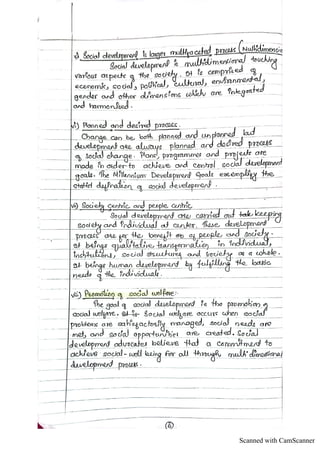 v) Social development is larger multifaceted process (Multidimension
Social development is multidimensional touching
various aspects of the society. It is comprised of
economic, social, political, cultural, environmental,
gender and other dimensions which are integrated
and harmonised.
vi) Planned and desired process:
Change can be both planned and unplanned but
development are always planned and desired process
of social change. Plans, programmes and projects are
made in order to achieve and control social development
goals. The Millennium Development Goals exemplify the
stated defination of social development.
vii) Society centric and people centric.
Social development are carried out take keeping
society and individual at center. These development
process are for the benefit of people and society.
It brings qualitative transformation in individual,
institutions, social structures and society as a whole.
It brings human development by fulfilling the basic
needs of the individuals.
viii) Promotion of social welfare:
The goal of social development is the promotion of
social welfare. It is Social welfare occurs when social
problems are satisfactorily managed, social needs are
met, and social opportunities are created. Social
development advocates believe that a commitment to
achieve social-well being for all through multi dimensional
development process.
Scanned with CamScanner